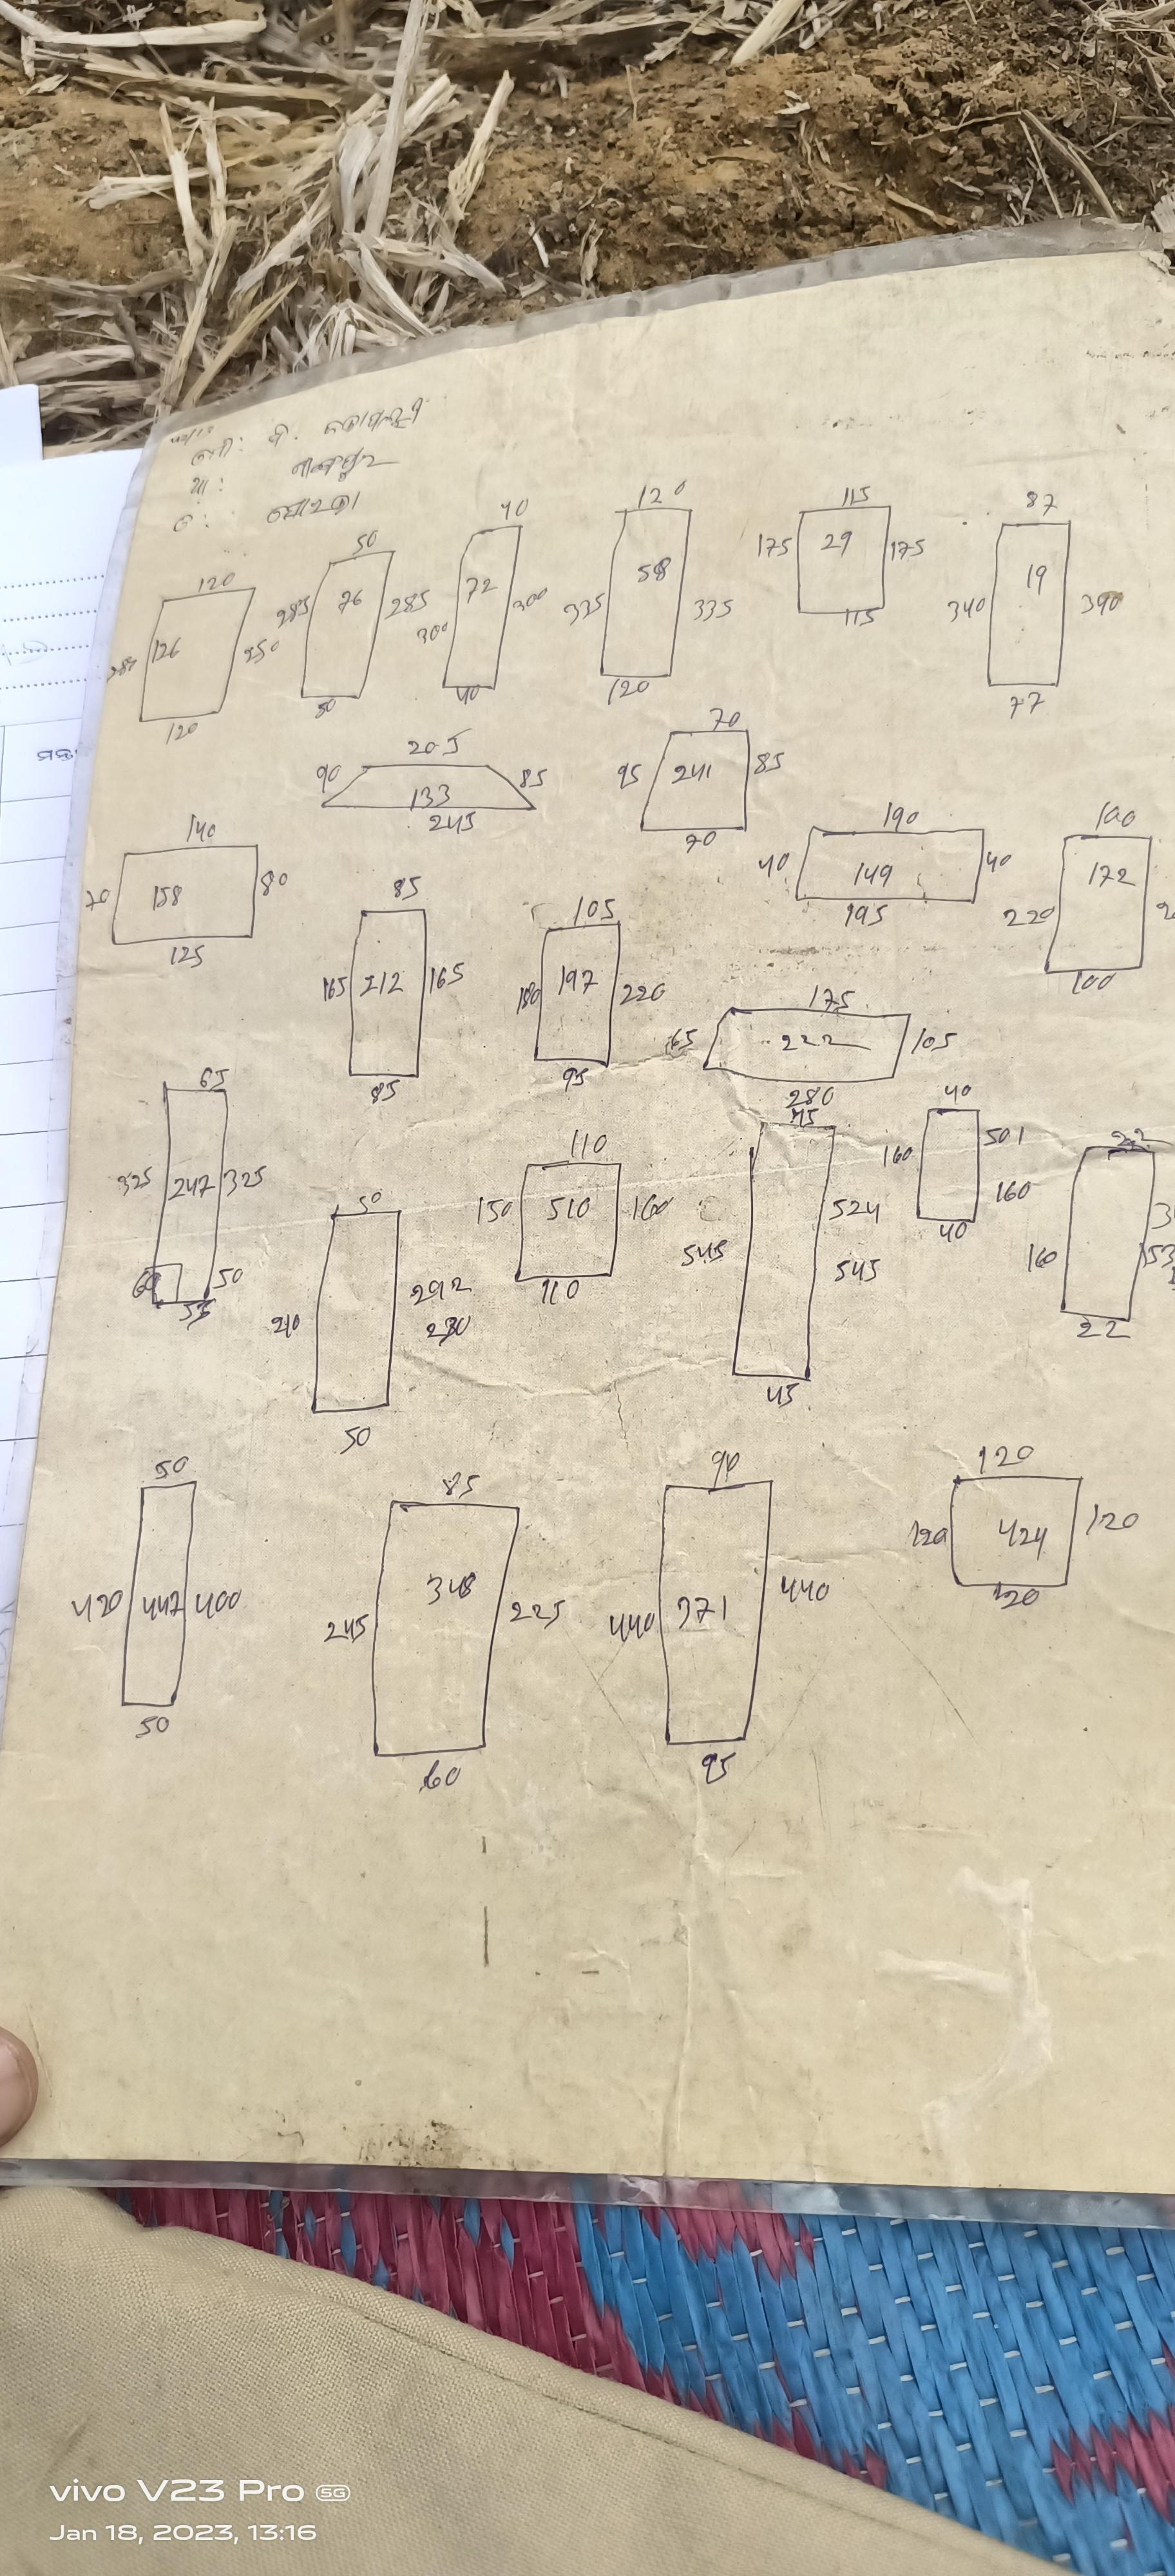 120
126
250
120
50
285
76
285
50
40
72
300
300
40
120
58
335
335
120
115
175
29
175
115
87
19
340
390
77
205
90
133
85
245
70
95
241
85
70
140
70
158
80
125
85
165
212
165
85
105
180
197
220
95
190
40
149
40
195
100
172
220
100
175
65
222
105
280
65
325
247
325
50
55
50
292
210
230
50
110
150
510
160
110
45
524
545
545
45
40
501
160
160
40
22
160
22
50
420
447
400
50
85
348
245
225
60
90
440
371
440
95
120
120
424
120
120
vivo V23 Pro 5G
Jan 18, 2023, 13:16